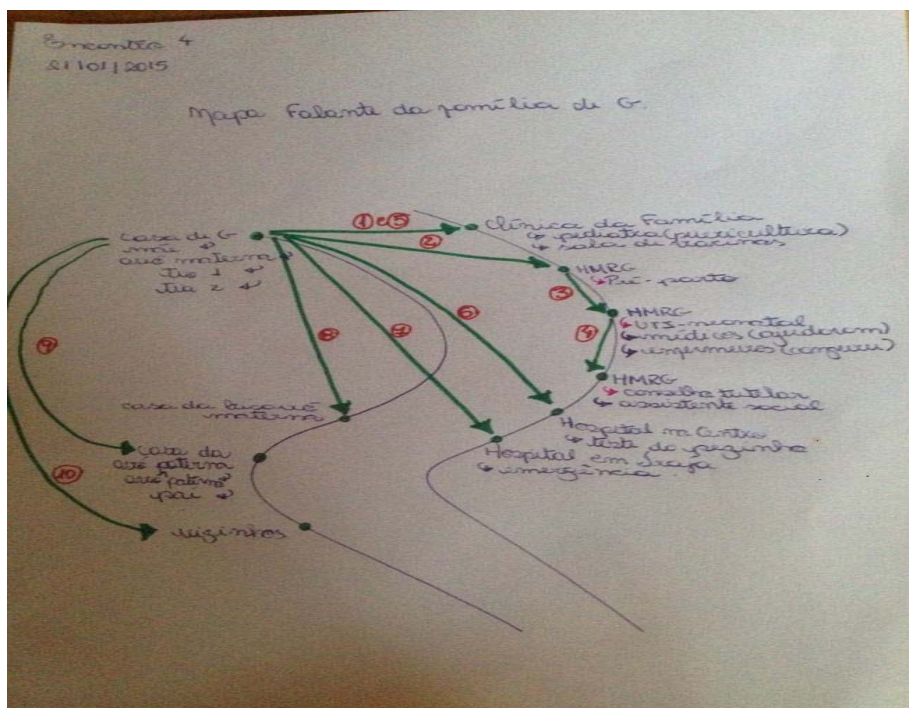 Encontro 4
21/01/2015
Mapa Falante da família de G.
① e ⑤
②
③
④
⑥
⑦
⑧
⑨
⑩
casa de G
mãe
avó materna
tio 1
tia 2
Clínica da Família
pediatra (puericultura)
sala de vacinas
HMRG
Pré-parto
HMRG
UTI-neonatal
médicos (ajudaram)
enfermeiros (canguru)
HMRG
conselho tutelar
assistente social
Hospital no Centro
teste do pezinho
Hospital em
emergência
casa da bisavó
materna
casa da
avó paterna
pai
vizinhos